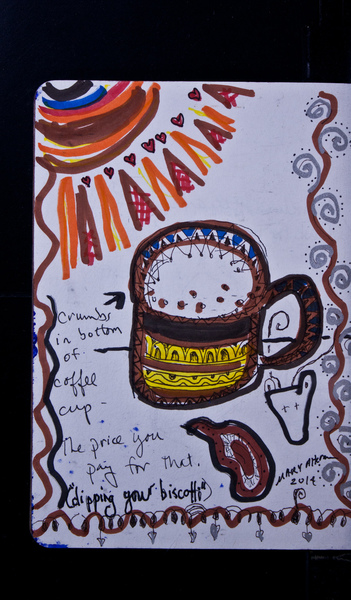 Crumbs
in bottom
of
coffee
cup -
The price you
pay for that.
("dipping your biscotti")
MARY
2014